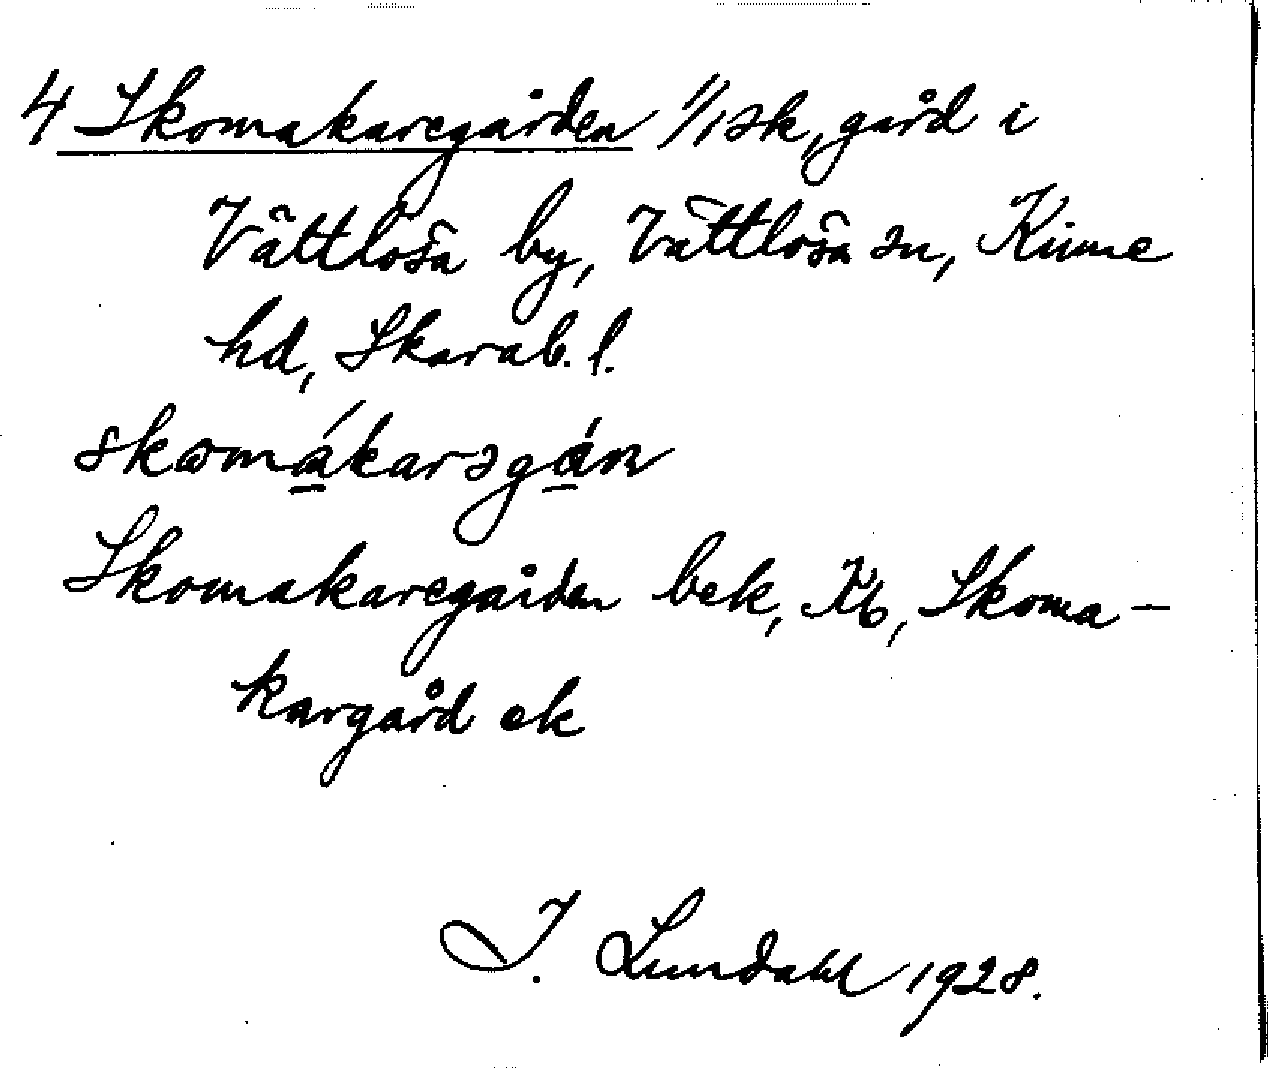 4 Skomakaregården 1/1 sk, gård i
Vättlösa by, Vättlösa sn, Kinne
hd, Skarab. l.
skωmákarəgán
Skomakaregården bek, Kb, Skoma-
kargård ek
I. Lundahl 1928.